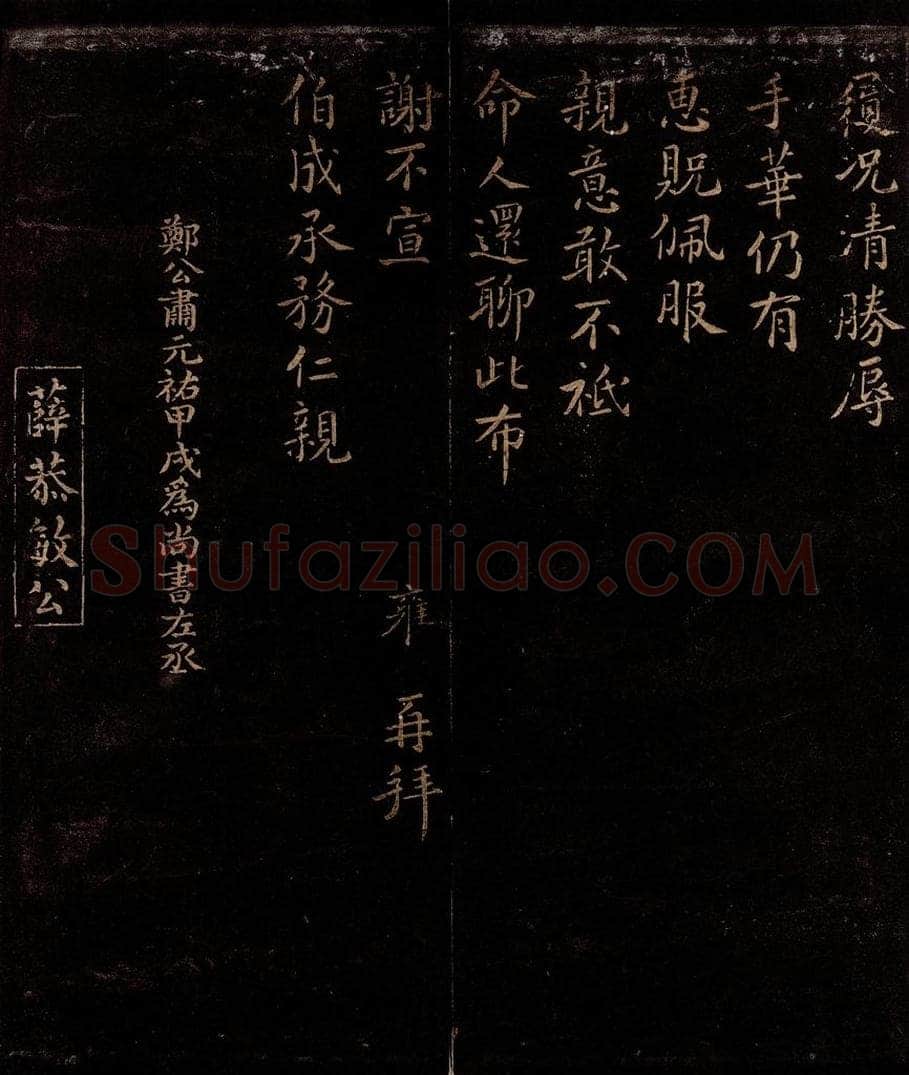 履况清勝辱
手華仍有
惠貺佩服
親意敢不祗
命人還聊此布
謝不宣
雍 再拜
伯成承務仁親
鄭公肅元祐甲戌爲尚書左丞
薛恭敏公
Shufaziliao.COM